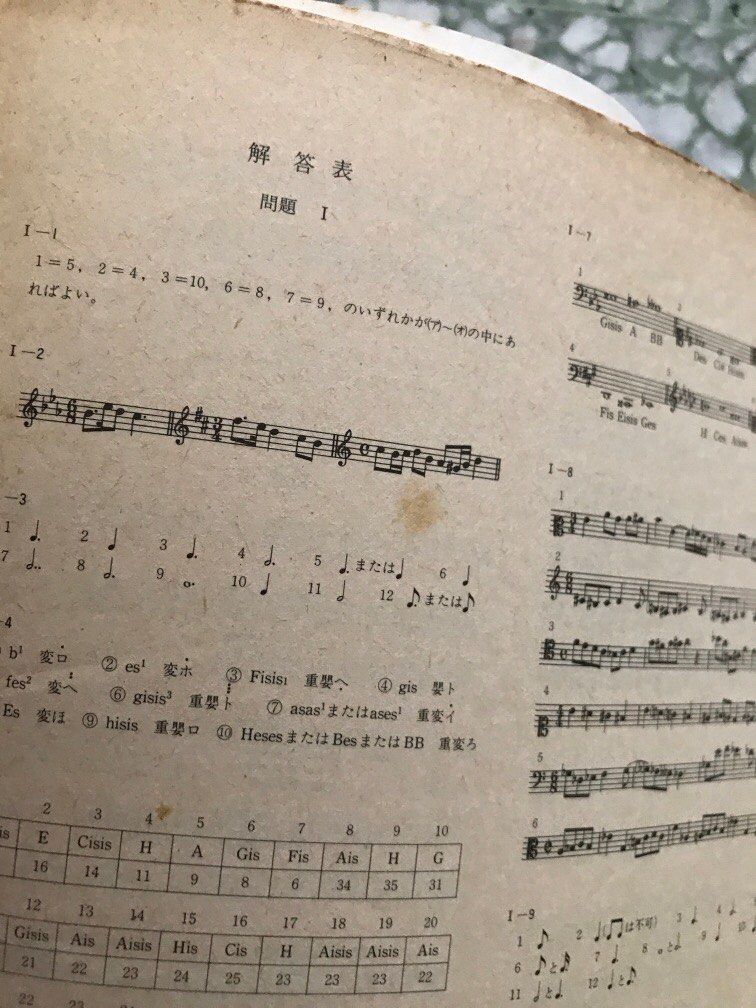 解答表
問題 I
I—1
1=5, 2=4, 3=10, 6=8, 7=9, のいずれかが(ア)~(オ)の中にあ
ればよい。
I—2
—3
1 ♩. 2 ♩ 3 ♩. 4 5 ♩.または♩ 6 ♩
7 8 9 10 ♩ 11 12 ♪.または♪
—4
b¹ 変ロ ② es¹ 変ホ ③ Fisis₁ 重嬰ヘ ④ gis 嬰ト
fes² 変ヘ ⑥ gisis³ 重嬰ト ⑦ asas¹またはases¹ 重変イ
Es 変ほ ⑨ hisis 重嬰ロ ⑩ HesesまたはBesまたはBB 重変ろ
2 3 4 5 6 7 8 9 10
is E Cisis H A Gis Fis Ais H G
16 14 11 9 8 6 34 35 31
12 13 14 15 16 17 18 19 20
Gisis Ais Aisis His Cis H Aisis Aisis Ais
21 22 23 24 25 23 23 23 22
22 23
I—7
1 2
Gisis A BB Des Cis
4 5
Fis Eisis Ges H Ces Aisis
I—8
1
2
3
4
5
6
I—9
1 ♪ 2 ♩(は不可) 3 ♩ 4 5
6 ♪と 7 ♩ 8 9 ♩ 10
11 ♩と♪ 12 ♩と♪